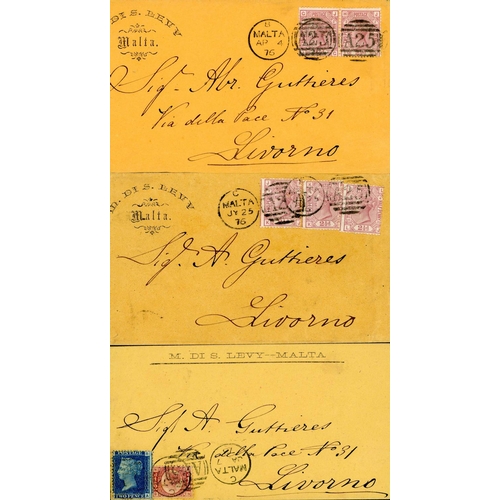 M. DI S. LEVY
Malta.
B
MALTA
AP 4
76
A25
A25
Sigr. Abr. Guttieres
Via della Pace No 31
Livorno
M. DI S. LEVY
Malta.
C
MALTA
JY 25
76
Sigr. A. Guttieres
Livorno
M. DI S. LEVY—MALTA
Sigr A. Guttieres
Via della Pace No 31
Livorno
C
MALTA
POSTAGE
TWO PENCE